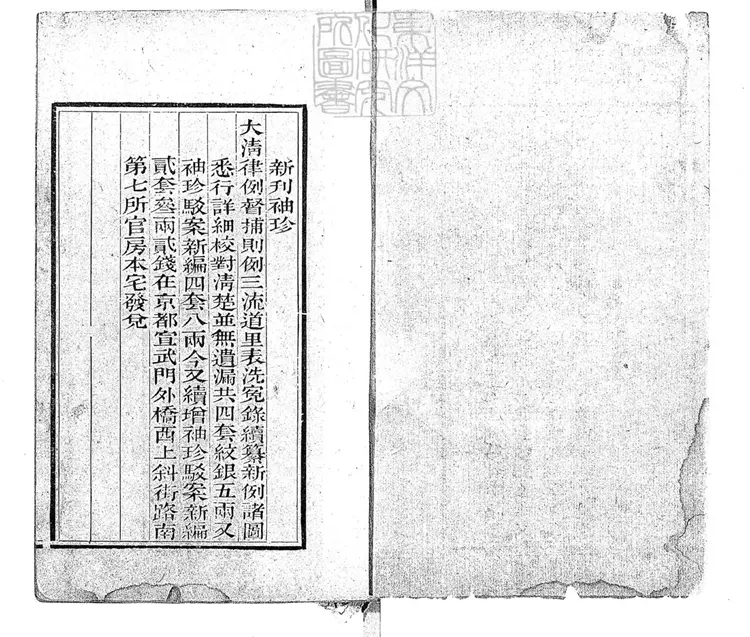 新刊袖珍
大清律例督捕則例三流道里表洗冤錄續纂新例諸圖
悉行詳細校對清楚並無遺漏共四套紋銀五兩又
袖珍駁案新編四套八兩今又續增袖珍駁案新編
貳套叄兩貳錢在京都宣武門外橋西上斜街路南
第七所官房本宅發兌
東洋文
化研究
所圖書